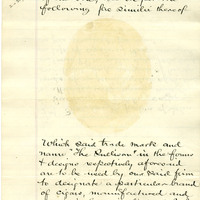 following fac simile thereof
Which said trade mark and
name "The Sullivan" in the forms
& designs respectively aforesaid
are to be used by our said firm
to designate a particular brand
of cigars, manufactured and